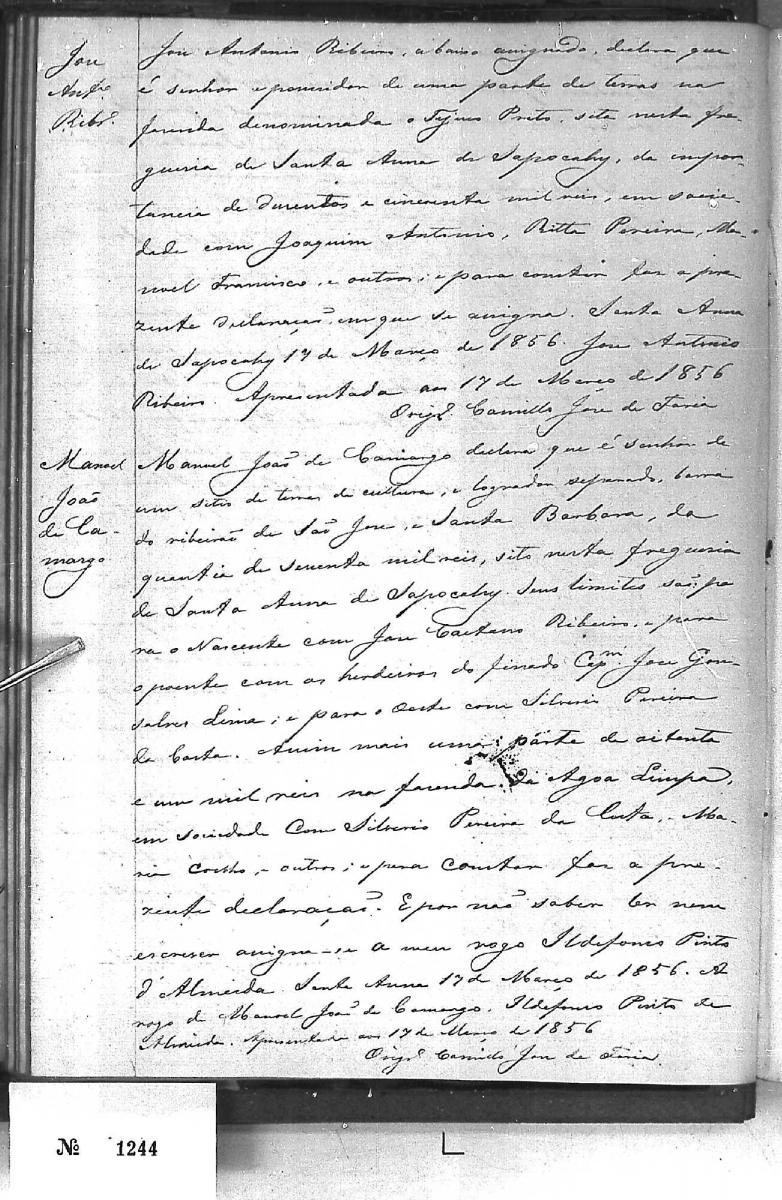 Jose
Antº
Ribrº
Jose Antonio Ribeiro, abaixo assignado, declara que
é senhor e possuidor de uma parte de terras na
fazenda denominada o Tijuco Preto, sita nesta fre-
guesia de Santa Anna de Sapocahy, da impor-
tancia de duzentos e cincoenta mil reis, em socie-
dade com Joaquim Antonio, Ritta Pereira, Ma-
noel Francisco, e outros; e para constar faz a pre-
zente declaração, em que se assigna. Santa Anna
de Sapocahy 17 de Março de 1856. Jose Antonio
Ribeiro. Apresentada aos 17 de Março de 1856
Camillo Jose de Faria
Manoel
João
de Ca-
margo
Manoel João de Camargo declara que é senhor de
um sitio de terras de cultura, e logrador separado, barra
do ribeirão de São Jose, e Santa Barbara, da
quantia de sessenta mil reis, sito nesta freguesia
de Santa Anna de Sapocahy. Seus limites são; pa
ra o Nascente com Jose Caetano Ribeiro, e para
o poente com os herdeiros do finado Capm. Jose Gon-
salves Lima; e para o Oeste com Silverio Pereira
da Costa. Assim mais uma parte de oitenta
e um mil reis na fazenda da Agoa Limpa,
em sociedade com Silverio Pereira da Costa, Ma-
ria Coelho, e outros; e para constar faz a pre-
zente declaração. E por não saber ler nem
escrever assigna-se a meu rogo Ildefonso Pinto
d'Almeida. Santa Anna 17 de Março de 1856. A
rogo de Manoel João de Camargo. Ildefonso Pinto de
Almeida. Apresentada aos 17 de Março de 1856
Camillo Jose de Faria.
Nº 1244